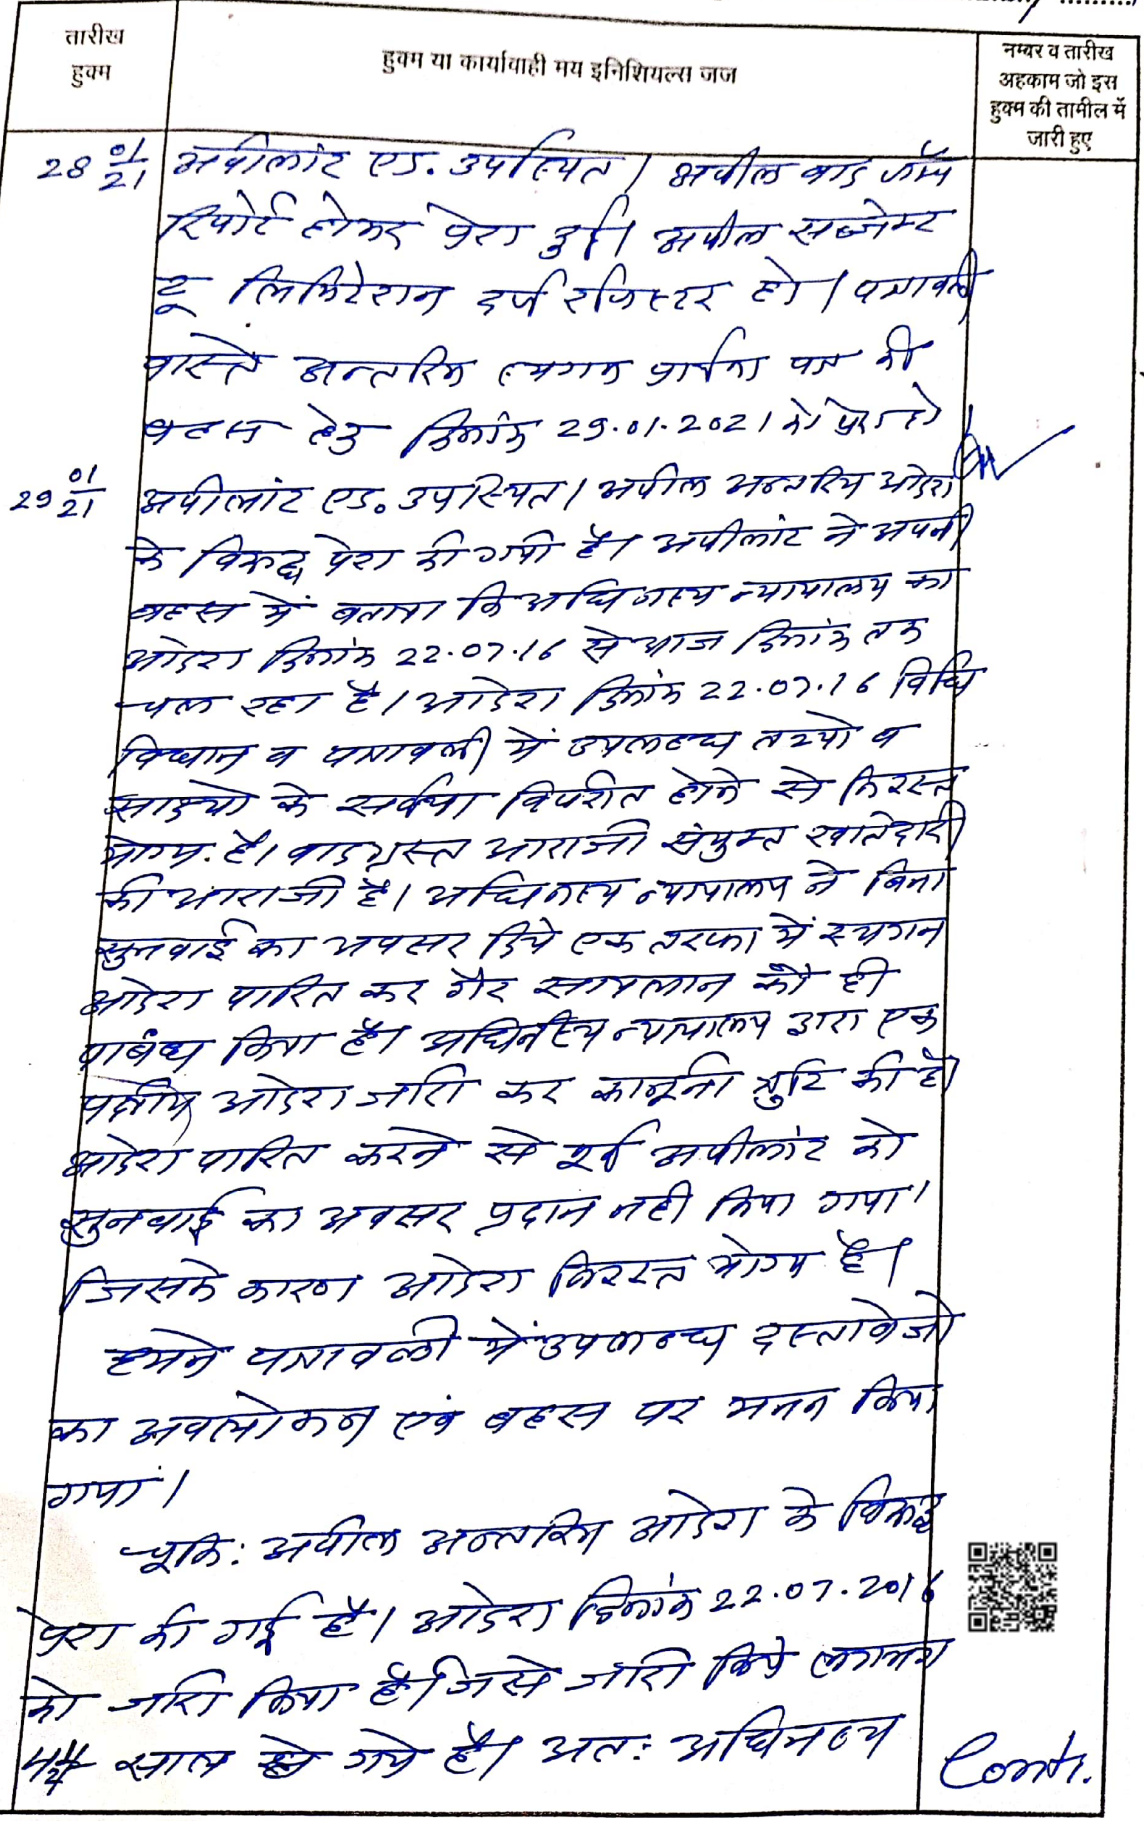 तारीख
हुक्म
हुक्म या कार्यावाही मय इनिशियल्स जज
नम्बर व तारीख
अहकाम जो इस
हुक्म की तामील में
जारी हुए
28 01/21 अपीलांट एड. उपस्थित। अपील बाद जॉच
रिपोर्ट होकर पेश हुई। अपील सब्जेक्ट
टू लिमिटेशन दर्ज रजिस्टर हो। पत्रावली
वास्ते अन्तरिम स्थगन प्रार्थना पत्र की
बहस हेतु दिनांक 29.01.2021 को पेश हो
29 01/21 अपीलांट एड. उपस्थित। अपील अन्तरिम आदेश
के विरूद्ध पेश की गयी है। अपीलांट ने अपनी
बहस में बताया कि अधिनस्थ न्यायालय का
आदेश दिनांक 22.07.16 से आज दिनांक तक
चल रहा है। आदेश दिनांक 22.07.16 विधि
विधान व पत्रावली में उपलब्ध तथ्यो व
साक्ष्यो के सर्वथा विपरीत होने से निरस्त
योग्य है। वादग्रस्त आराजी संयुक्त खातेदारी
की आराजी है। अधिनस्थ न्यायालय ने बिना
सुनवाई का अवसर दिये एक तरफा में स्थगन
आदेश पारित कर गैर सायलान को ही
पाबंध किया है। अधिनस्थ न्यायालय द्वारा एक
पक्षीय आदेश जारी कर कानूनी त्रुटि की है।
आदेश पारित करने से पूर्व अपीलांट को
सुनवाई का अवसर प्रदान नही किया गया।
जिसके कारण आदेश निरस्त योग्य है।
हमने पत्रावली में उपलब्ध दस्तावेजो
का अवलोकन एवं बहस पर मनन किया
गया।
चूकि: अपील अन्तरिम आदेश के विरूद्ध
पेश की गई है। आदेश दिनांक 22.07.2016
को जारी किया है जिसे जारी किये लगभग
साल हो गये है। अत: अधिनस्थ
Conti.